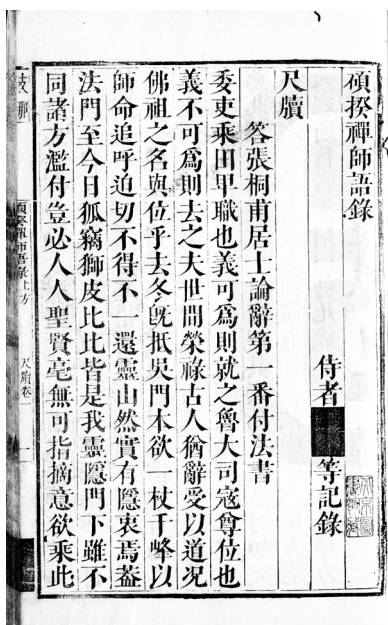 碩揆禪師語錄
侍者　等記錄
尺牘
答張桐甫居士論辭第一番付法書
委吏乘田卑職也義可為則就之魯大司寇尊位也
義不可為則去之夫世間榮祿古人猶辭受以道况
佛祖之名與位乎去冬旣抵吳門本欲一杖千峰以
師命追呼迫切不得不一還靈山然實有隱衷焉蓋
法門至今日狐竊獅皮比比皆是我靈隱門下雖不
同諸方濫付豈必人人聖賢毫無可指摘意欲乘此
支那
碩揆禪師語錄上方
尺牘卷一
一